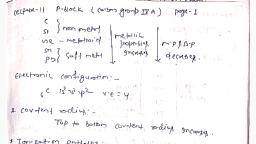 Lecture-11 P-block (carbon group IVA) page-1
C
Si } non metal
Ge - metalloid
Sn
Pb } soft metal
metallic
properties
increases
m.p & B.p
decreases
Electronic configuration:-
6C 1s² 2s² 2p² v.e = 4
* Covalent radius:-
Top to bottom covalent radius increases.
* Ionization